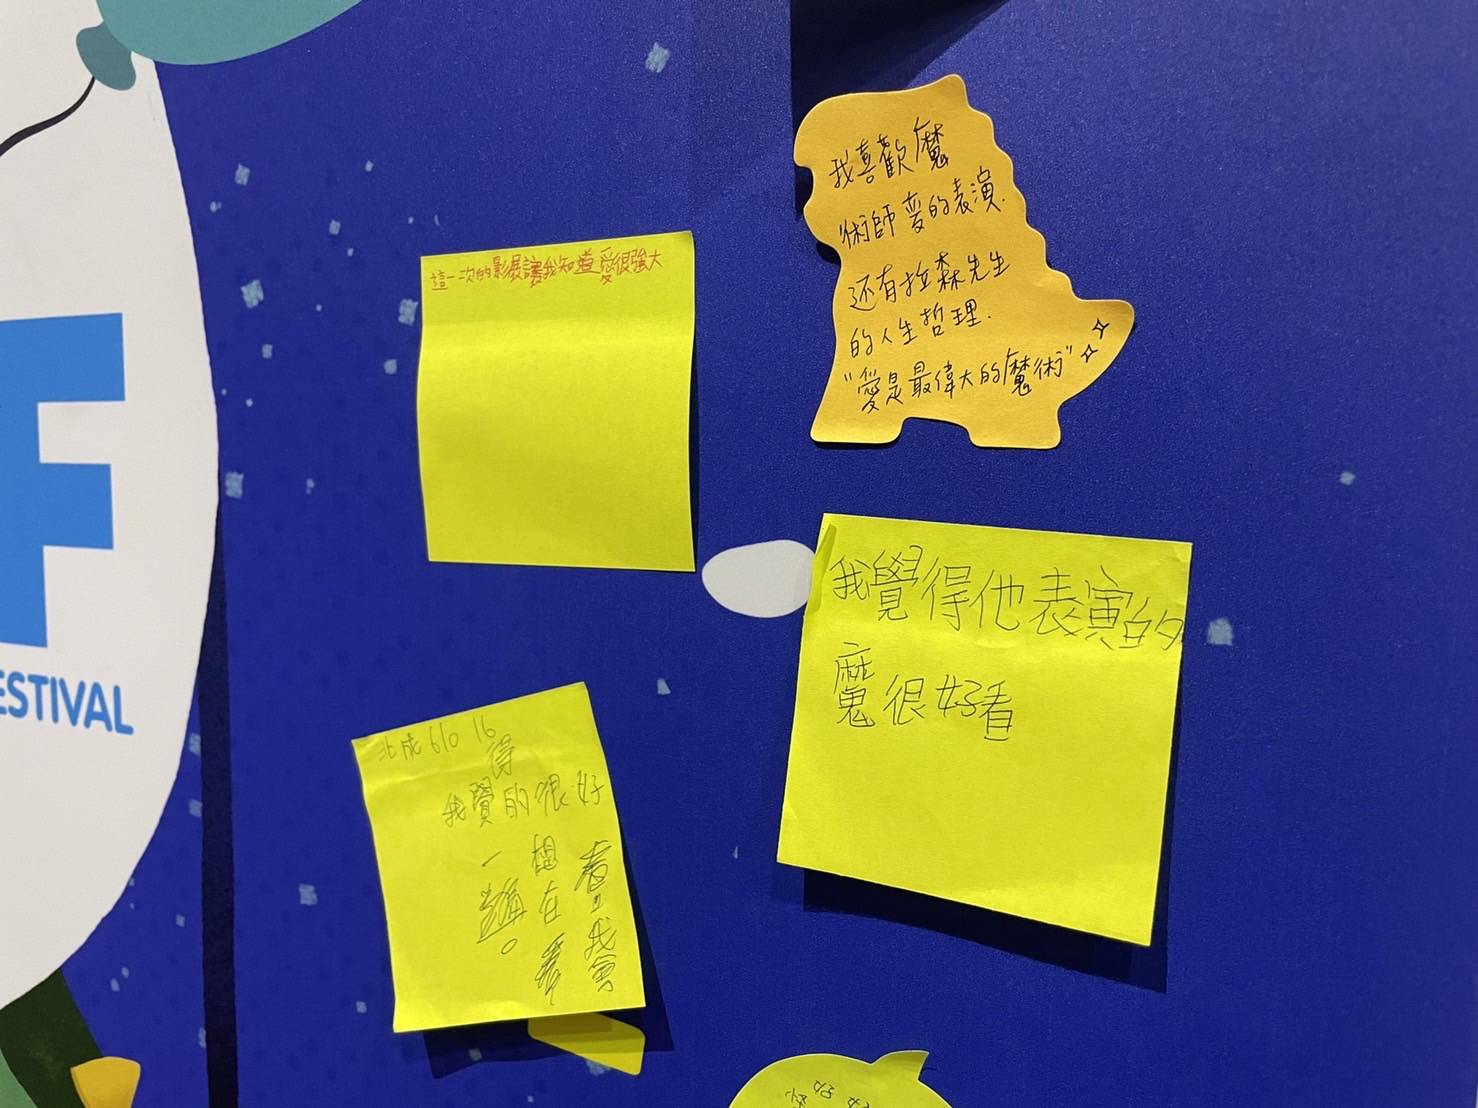 F
ESTIVAL
這一次的影展讓我知道愛很強大
我喜歡魔
術師麥的表演.
還有拉森先生
的人生哲理.
"愛是最偉大的魔術"
我覺得他表演的
魔很好看
北成610 16
得
我覺的很好
看!!我會
想在看
一遍。